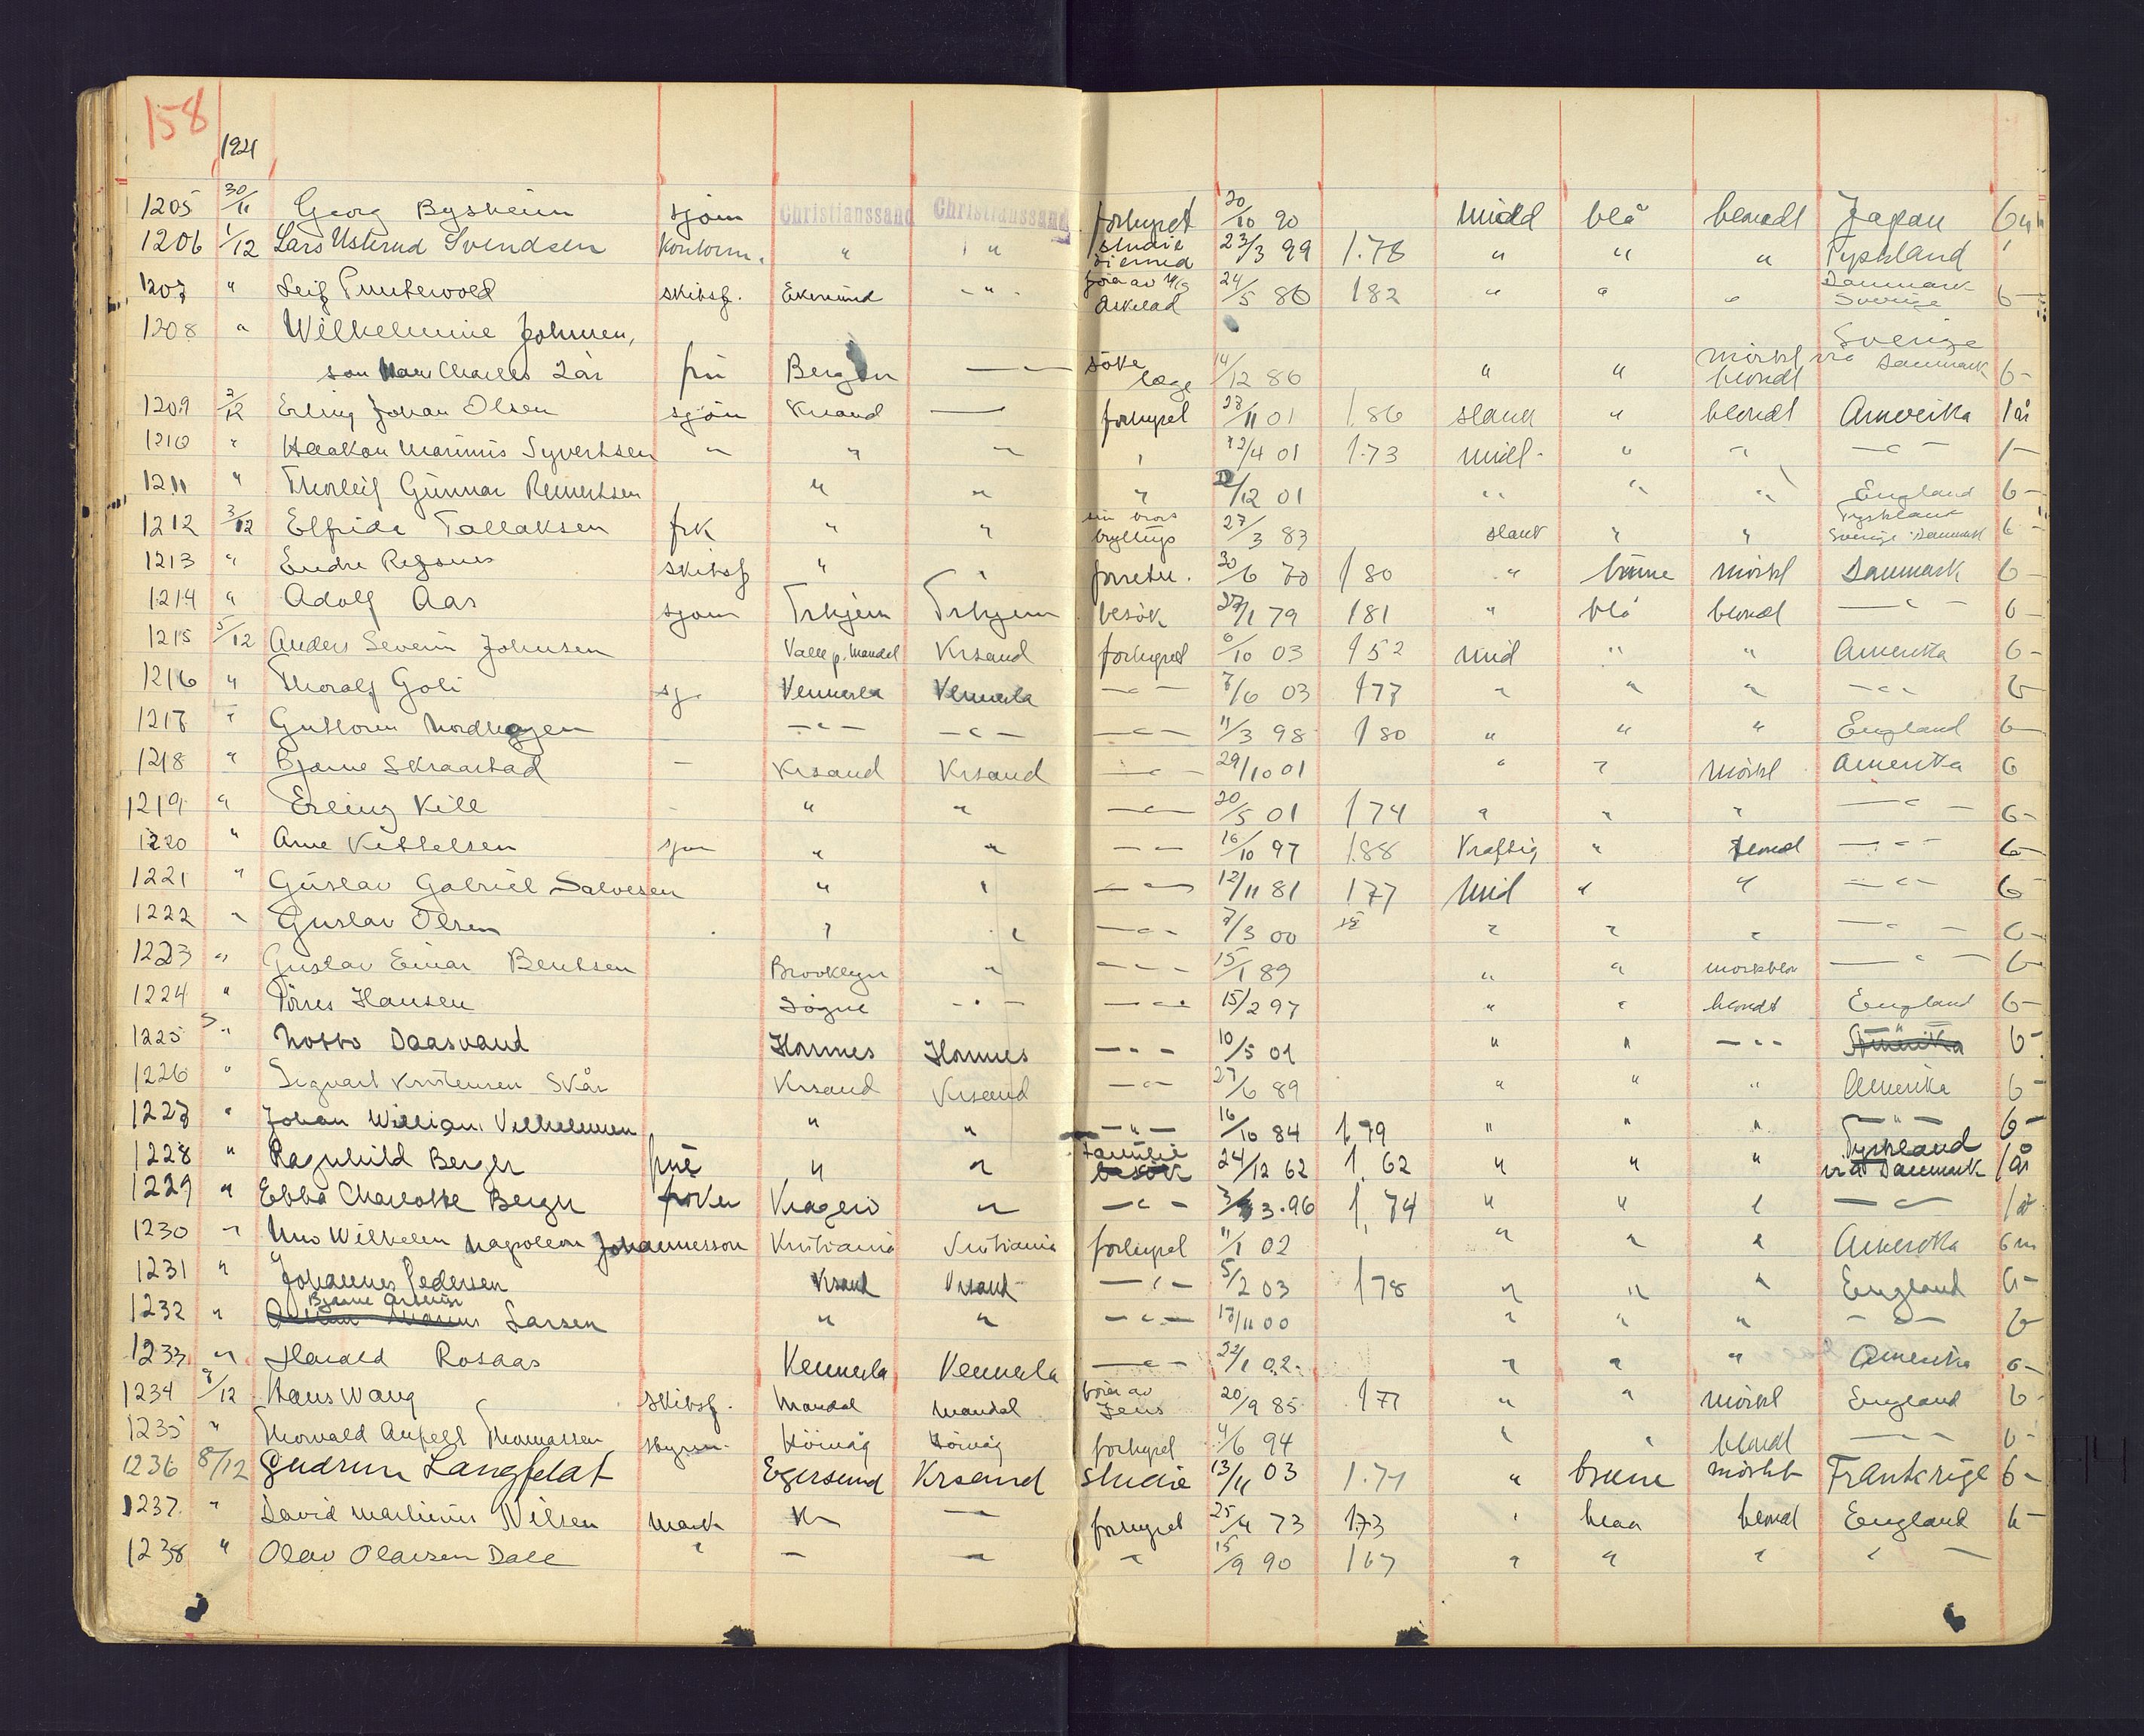 158
1921
1205 30/11 Georg Bysheim sjøm Christianssand Christianssand forhyret 20/10 90 midd blå blondt Japan 6 m
1206 1/12 Lars Usterud Svendsen kontorm. " " studie 23/3 99 1.78 " " " Tyskland
1207 " Leif skibsf. " Askelad 24/5 86 182 " " " Danmark Sverige 6 -
1208 " Wilhelmine Johnsen, Sverige
søn Charles 2 år frú Bergen — søke læge 14/12 86 " " mörkt blondt via Danmark 6 -
1209 2/12 Erling Johan Olsen sjøm Krsand — forhyret 28/11 01 1.86 slank " blondt Amerika 1 år
1210 " Haakon Marinius Syvertsen " " " " 12/4 01 1.73 midl. " " — " — 1 -
1211 " Thorleif Gunnar Reinertsen " " " /12 01 " " " England 6 -
1212 3/12 Elfrida Tallaksen frk " " sin brors bryllup 27/3 83 slank " " Tyskland Sverige Danmark 6 -
1213 " Endre skibsf " " forretn. 30/6 70 1 80 " brune mörkt Danmark 6 -
1214 " Adolf Aas sjøm Trhjem Trhjem besök 27/1 79 181 " blå blondt — " — 6 -
1215 5/12 Anders Severin Johnsen Valle p. Mandal Krsand forhyret 6/10 03 152 mid " " Amerika 6 -
1216 " Thoralf Goli sj. Vennesla Vennesla — " — 7/6 03 177 " " " — " — 6 -
1217 " Guttorm Nordhagen — " — — " — — " — 11/3 98 1 80 " " " England 6 -
1218 " Bjarne Skraastad — Krsand Krsand — " — 29/10 01 " " mörkt Amerika 6
1219 " Erling Kill - " " — " — 20/5 01 174 " " " — " — 6 -
1220 " Arne Kittelsen sjm " " — " — 16/10 97 1.88 Kraftig " blond — " — 6 -
1221 " Gustav Gabriel Salvesen " " — " — 12/11 81 177 mid " " — " — 6
1222 " Gustav Olsen " " — " — 7/3 00 " " " — " — 6 -
1223 " Gustav Einar Berntsen Brooklyn " — " — 15/1 89 " " mörkblon — " — 6
1224 " Hansen Søgne — " — — " — 15/2 97 " " blondt England 6 -
1225 " Notto Daasvand Hornnes Hornnes — " — 10/5 01 " " — " — Amerika 6 -
1226 " Sigvart Kristensen Skår Krsand Krsand — " — 27/6 89 " " " Amerika 6 -
1227 " Johan William Vilhelmsen " " — " — 16/10 84 1.79 " " " — " — 6 -
1228 " Ragnhild Berger frúe " " familie besök 24/12 62 1.62 " " " Tyskland via Danmark 1 år
1229 " Ebba Charlotte Berger frøken Kragerö " — " — 3/3.96 1.74 " " " — " — 1 år
1230 " Uno Wilhelm Napoleon Johannesson Kristiania Kristiania forhyret 11/1 02 " " " Amerika 6 m
1231 " Johannes Pedersen Krsand Krsand — " — 5/2 03 178 " " " England 6 -
1232 " Bjarne Larsen " " — " — /11 00 " " " — " — 6
1233 " Harald Rosaas Vennesla Vennesla — " — 22/1 02 " " " Amerika 6 -
1234 8/12 Hans Wang skibsf. Mandal Mandal Jens 20/9 85 177 " " mörkt England 6 -
1235 " Thorvald Thomassen styrm. Höivåg Höivåg forhyret 4/6 94 " " blondt — " — 6 -
1236 8/12 Gudrun Langfeldt Egersund Krsand Studie 13/11 03 1.71 " brune mörkt Frankrige 6 -
1237. " David Martinius Nilsen mask K — — forhyret 25/4 73 1.73 " blaa blond England 6 -
1238 " Olav Olavsen Dale " — — " 15/9 90 167 " " " " —